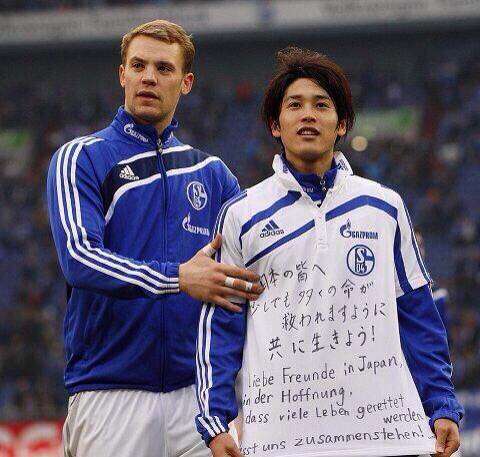 adidas
GAZPROM
S
04
adidas
GAZPROM
S
04
日本の皆へ
少しでも多くの命が
救われますように
共に生きよう!
Liebe Freunde in Japan,
in der Hoffnung,
dass viele Leben gerettet
werden
lasst uns zusammenstehen!